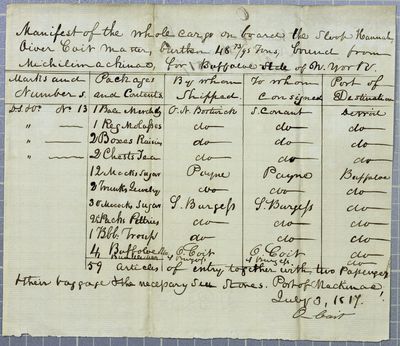 Manifest of the whole cargo on board the Sloop Hannah,
Oliver Coit Master, burthen 48 Tons, bound from
Michilimackinac, for Buffaloe State of N. York.
Marks and Packages By whom To whom Port of
Numbers and Contents Shipped Consigned Destination
No 13 1 Bale O. N. Bostwick S. Conant Detroit
" — 1 Keg Molasses do do do
" — 2 Boxes Raisins do do do
" — 2 Chests Tea do do do
12 Mococks Sugar Payne Payne Buffaloe
3 Trunks do do do
30 Mococks Sugar S. Burgess S. Burgess do
Packs Peltries do do do
1 Bbl. do do do
4 Buffaloe O. Coit O. Coit do
& Burgess & Burgess do
59 articles of entry together with two Passengers
& their baggage & the necessary Sea Stores. Port of Mackinac,
July 3, 1817.
O Coit